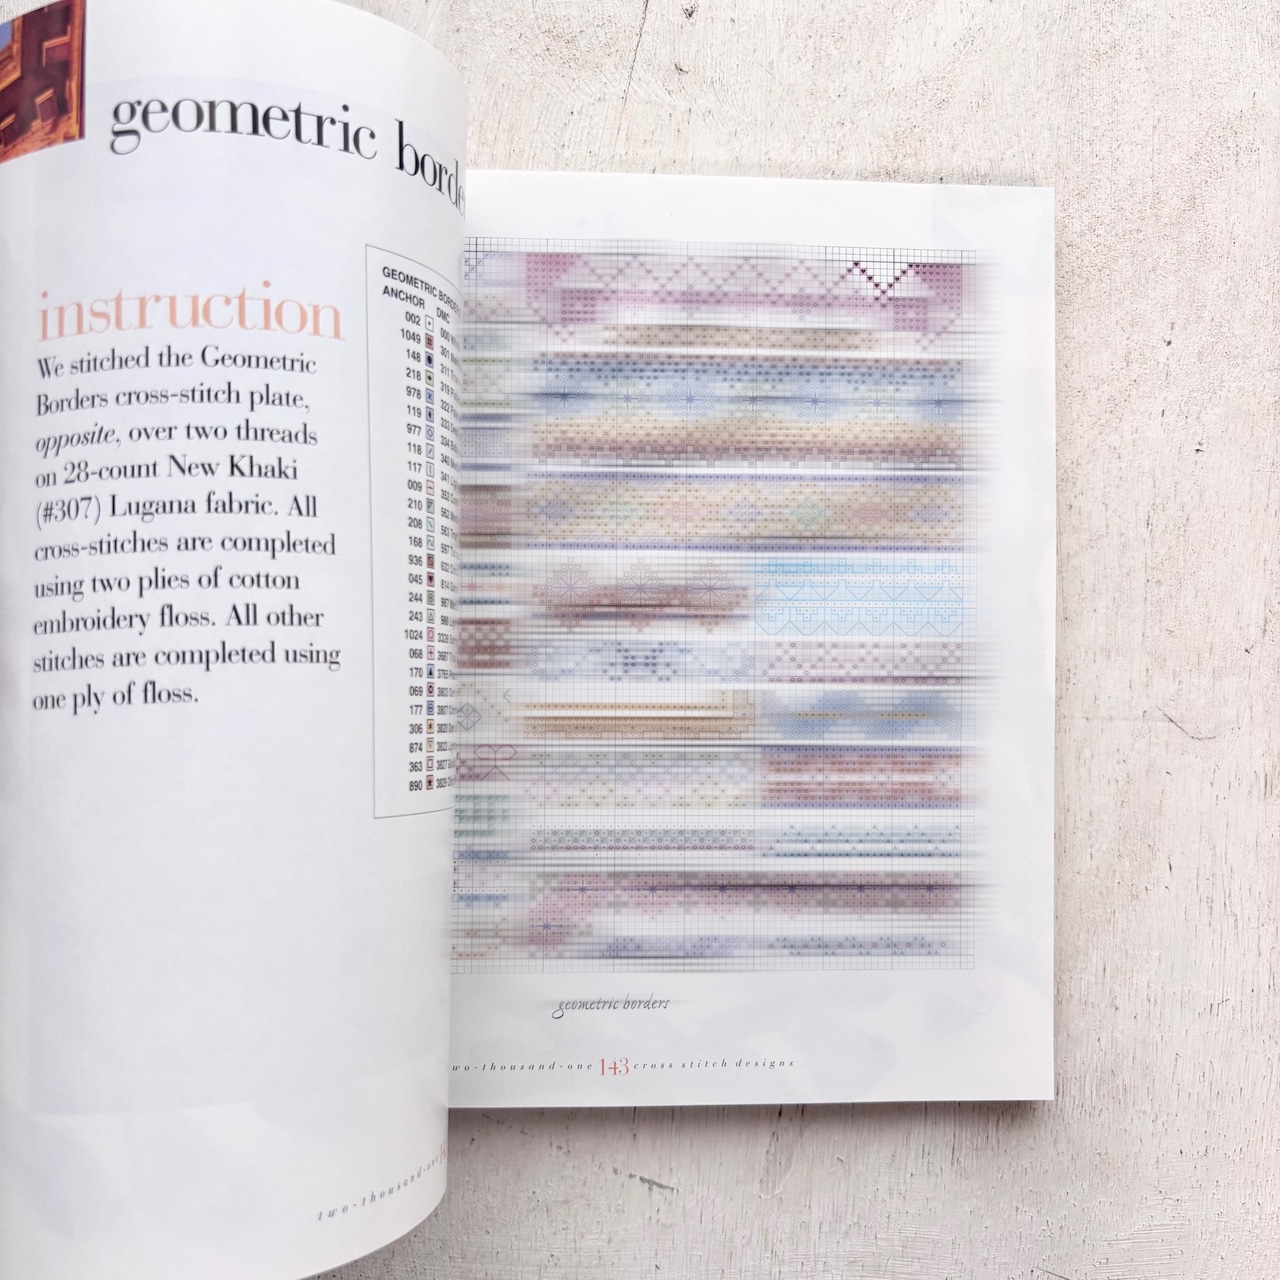 geometric
instruction
We stitched the Geometric
Borders cross-stitch plate,
opposite, over two threads
on 28-count New Khaki
(#307) Lugana fabric. All
cross-stitches are completed
using two plies of cotton
embroidery floss. All other
stitches are completed using
one ply of floss.
GEOMETRIC
ANCHOR DMC
002 000
1049 301
148 311
218 319
978 322
119 333
977 334
118 340
117 341
009 352
210 562
208 563
168 597
936 632
045 814
244 987
243 988
1024 3328
068 3687
170 3765
069 3803
177 3807
306 3820
874 3822
363 3827
890 3829
two-thousand-one
geometric borders
143 cross stitch designs